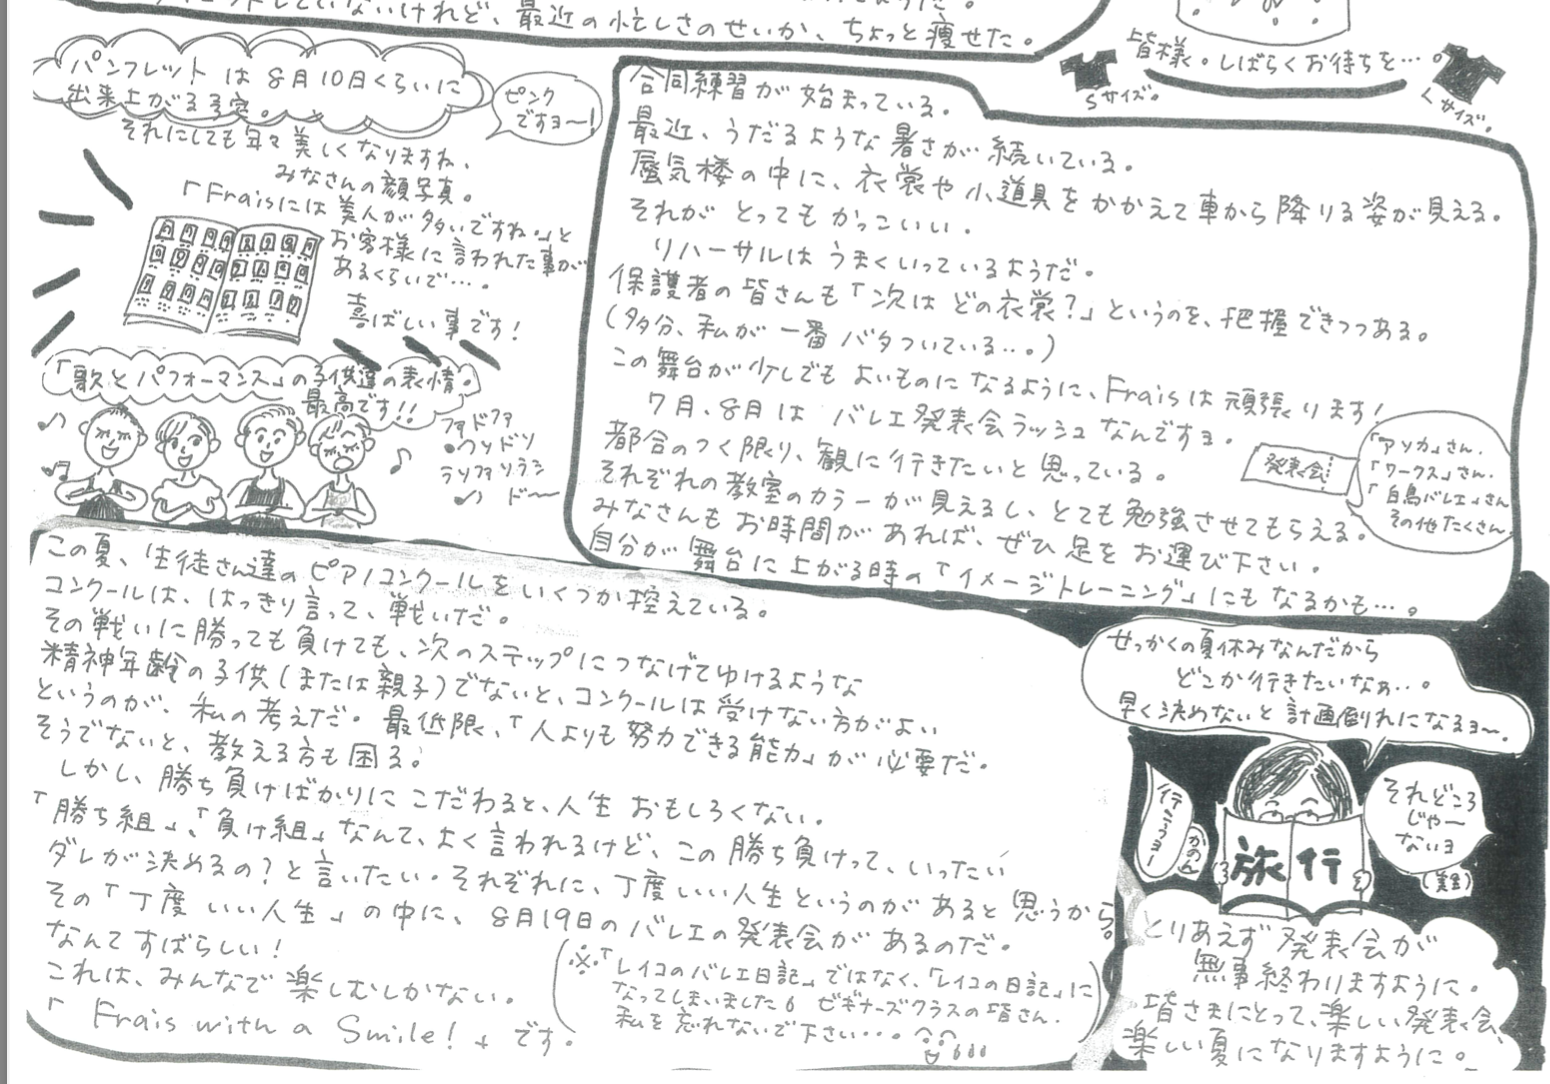 ていないけれど、最近の忙しさのせいか、ちょっと痩せた。
皆様。しばらくお待ちを…。
Sサイズ。
Lサイズ。
パンフレットは8月10日くらいに
出来上がる予定。
ピンク
ですョ〜!
それにしても年々美しくなりますね、
みなさんの顔写真。
「Fraisには美人が多いですね。」と
お客様に言われた事が
あるくらいで…。
喜ばしい事です!
「歌とパフォーマンス」の子供達の表情。
最高です!!
ドファ
ソドソ
ラソファソラシ
ド〜
合同練習が始まっている。
最近、うだるような暑さが続いている。
蜃気楼の中に、衣裳や小道具をかかえて車から降りる姿が見える。
それがとってもかっこいい。
リハーサルはうまくいっているようだ。
保護者の皆さんも「次はどの衣裳?」というのを、把握できつつある。
(多分、私が一番バタついている…。)
この舞台が少しでもよいものになるように、Fraisは頑張ります!
7月、8月はバレエ発表会ラッシュなんですョ。
都合のつく限り、観に行きたいと思っている。
それぞれの教室のカラーが見えるし、とても勉強させてもらえる。
みなさんもお時間があれば、ぜひ足をお運び下さい。
自分が舞台に上がる時の「イメージトレーニング」にもなるかも…。
発表会
「アソカ」さん.
「ワークス」さん.
「白鳥バレエ」さん
その他たくさん
この夏、生徒さん達のピアノコンクールをいくつか控えている。
コンクールは、はっきり言って、戦いだ。
その戦いに勝っても負けても、次のステップにつなげてゆけるような
精神年齢の子供(または親子)でないと、コンクールは受けない方がよい
というのが、私の考えだ。最低限、「人よりも努力できる能力」が必要だ。
そうでないと、教える方も困る。
しかし、勝ち負けばかりにこだわると、人生おもしろくない。
「勝ち組」、「負け組」なんて、よく言われるけど、この勝ち負けって、いったい
ダレが決めるの?と言いたい。それぞれに、丁度いい人生というのがあると思うから。
その「丁度いい人生」の中に、8月19日のバレエの発表会があるのだ。
なんてすばらしい!
これは、みんなで楽しむしかない。
「Frais with a Smile!」です。
(※「レイコのバレエ日記」ではなく、「レイコの日記」に
なってしまいました。ビギナーズクラスの皆さん、
私を忘れないで下さい…。
せっかくの夏休みなんだから
どこか行きたいなぁ…。
早く決めないと計画倒れになるョ〜.
行こうョー
かのん
それどころ
じゃー
ないョ
旅行
とりあえず発表会が
無事終わりますように。
皆さまにとって、楽しい発表会、
楽しい夏になりますように。